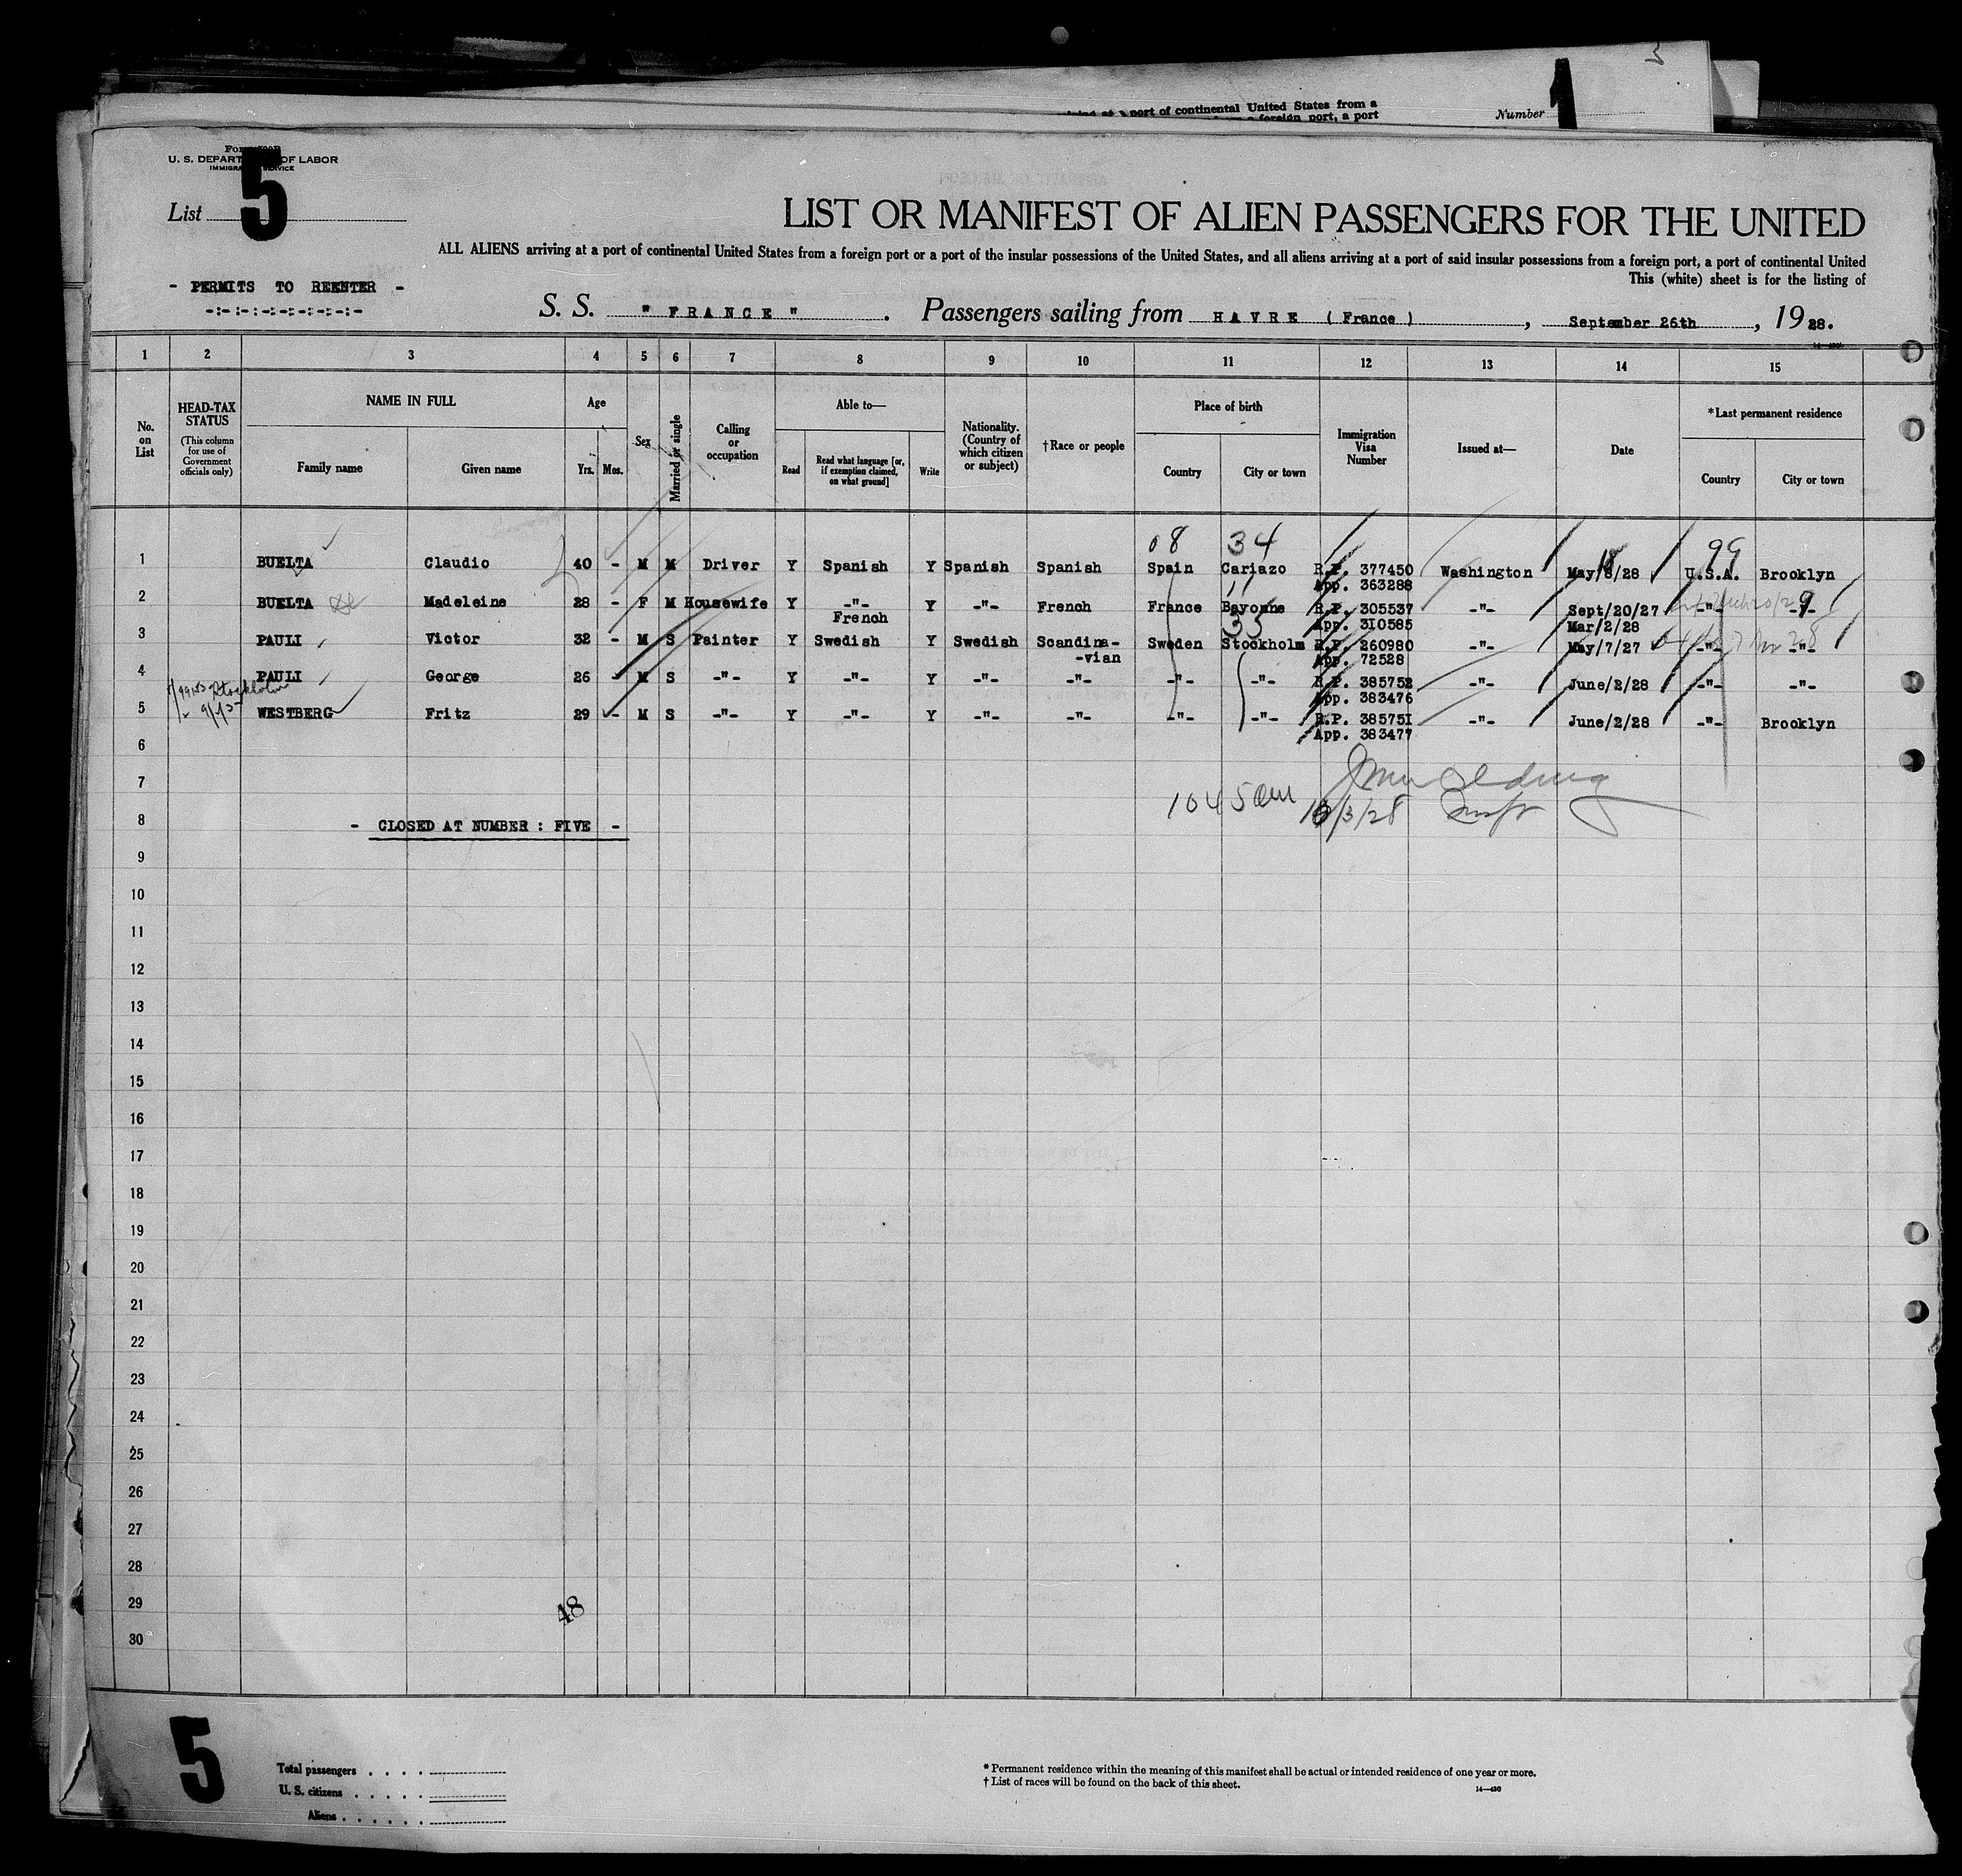 1
3
aining at a port of continental United States from a
a foreign port, a port
Number
U. S. DEPARTMENT OF LABOR
IMMIGRATION SERVICE
List 5
LIST OR MANIFEST OF ALIEN PASSENGERS FOR THE UNITED
ALL ALIENS arriving at a port of continental United States from a foreign port or a port of the insular possessions of the United States, and all aliens arriving at a port of said insular possessions from a foreign port, a port of continental United
This (white) sheet is for the listing of
- PERMITS TO REENTER -
-:-:-:-:-:-:-:-:-
S. S. " FRANCE ". Passengers sailing from HAVRE (France), September 26th, 1928.
14—430
1 2 3 4 5 6 7 8 9 10 11 12 13 14 15
No. on List
HEAD-TAX STATUS
(This column for use of Government officials only)
NAME IN FULL
Family name Given name
Age
Yrs. Mos.
Sex
Married or single
Calling or occupation
Able to—
Read
Read what language [or, if exemption claimed, on what ground]
Write
Nationality. (Country of which citizen or subject)
†Race or people
Place of birth
Country City or town
Immigration Visa Number
Issued at—
Date
*Last permanent residence
Country City or town
08 34 99
1 BUELTA Claudio 40 - M M Driver Y Spanish Y Spanish Spanish Spain Cariazo R.P. 377450 Washington May/8/28 U.S.A. Brooklyn
App. 363288
18
11
2 BUELTA Madeleine 28 - F M Housewife Y -"- Y -"- French France Bayonne R.P. 305537 -"- Sept/20/27 -"- -"-
French App. 310585 Mar/2/28
33
3 PAULI Victor 32 - M S Painter Y Swedish Y Swedish Scandina- Sweden Stockholm R.P. 260980 -"- May/7/27 -"- -"-
-vian App. 72528
4 PAULI George 26 - M S -"- Y -"- Y -"- -"- -"- -"- R.P. 385752 -"- June/2/28 -"- -"-
App. 383476
Stockholm
5 WESTBERG Fritz 29 - M S -"- Y -"- Y -"- -"- -"- -"- R.P. 385751 -"- June/2/28 -"- Brooklyn
App. 383477
6
7
1045am 10/3/28
8 - CLOSED AT NUMBER : FIVE -
9
10
11
12
13
14
15
16
17
18
19
20
21
22
23
24
25
26
27
28
29
48
30
5
Total passengers . . . .
U. S. citizens . . . . .
Aliens . . . . . .
* Permanent residence within the meaning of this manifest shall be actual or intended residence of one year or more.
† List of races will be found on the back of this sheet.
14—430